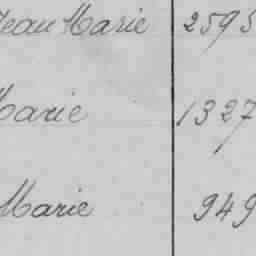 Jean Marie 2595
Marie 1327
Marie 949